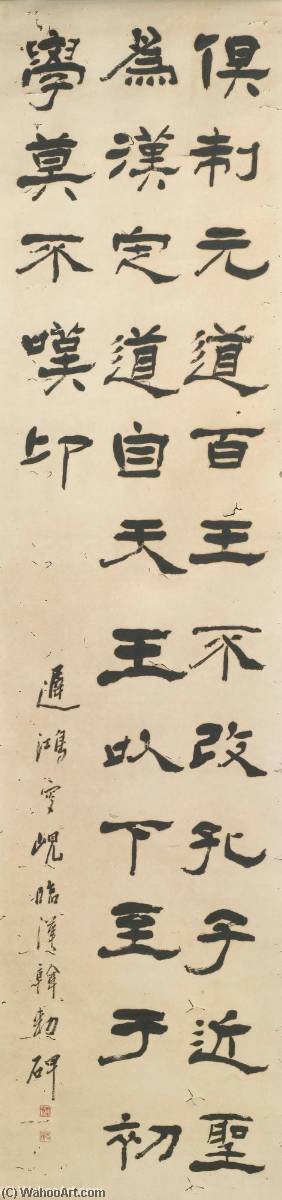 俱制元道百王不改孔子近聖
爲漢定道自天王以下至于初
學莫不嘆卬
遲鴻叟峴臨漢韓勑碑
(C) WahooArt.com